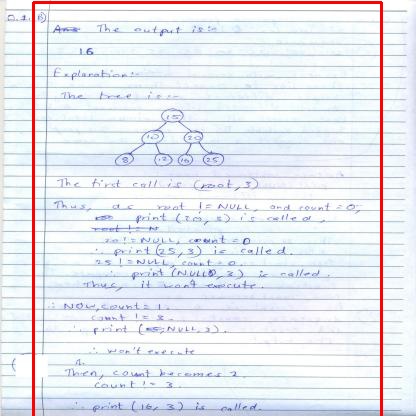 Q.1. B)
Ans The output is:-
16
Explanation:-
The tree is :-
15
10 20
8 12 16 25
The first call is (root, 3)
Thus, as root != NULL, and count = 0,
print (20, 3) is called,
root != N
20 != NULL, count = 0
∴ print (25, 3) is called.
25 != NULL, count = 0.
∴ print (NULL, 3) is called.
Thus, it won't execute.
∴ NOW, count = 1.
count != 3.
∴ print (NULL, 3).
∴ won't execute
Then, count becomes 2.
count != 3.
∴ print (16, 3) is called.